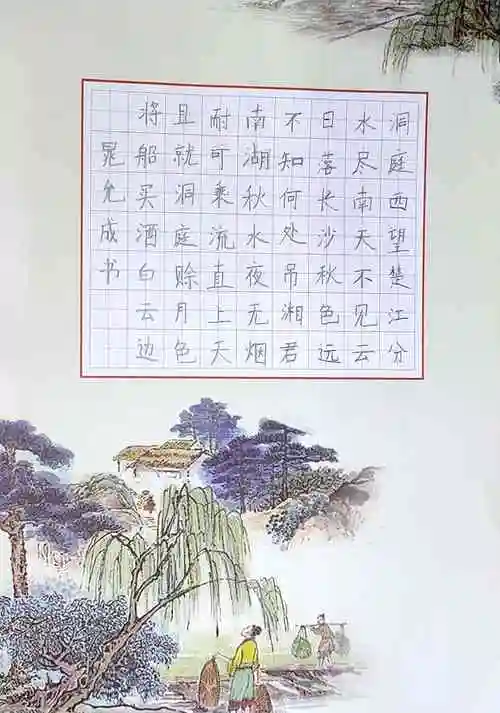 洞庭西望楚江分
水尽南天不见云
日落长沙秋色远
不知何处吊湘君
南湖秋水夜无烟
耐可乘流直上天
且就洞庭赊月色
将船买酒白云边
晁允成书